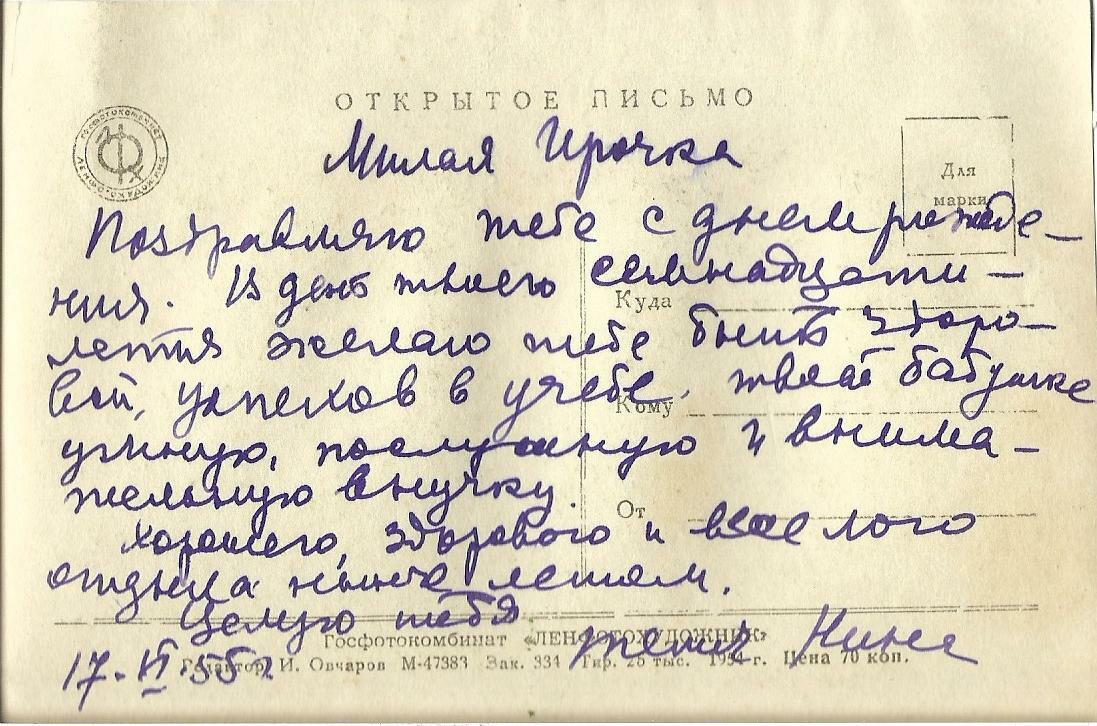 ОТКРЫТОЕ ПИСЬМО
ГОСФОТОКОМБИНАТ
ЛЕНФОТОХУДОЖНИК
Для
марки
Милая Ирочка
Поздравляю тебе с днем рожде-
ния. В день твоего семнадцати-
Куда
летия желаю тебе быть здоро-
вой, успехов в учебе, твоей бабушке
Кому
умную, послушную и внима-
тельную внучку.
От
Хорошего, здорового и веселого
отдыха нынче летом.
Целую тебя
тетя Нина
Госфотокомбинат «ЛЕНФОТОХУДОЖНИК»
Редактор И. Овчаров М-47383 Зак. 334 Тир. 25 тыс. 1954 г. Цена 70 коп.
17-VI 55 г.